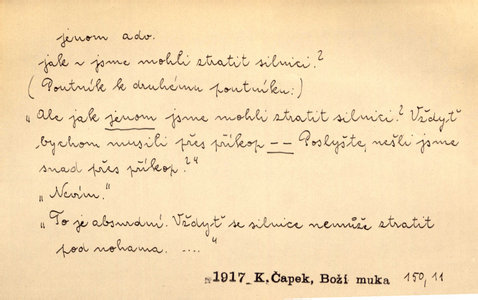 jenom adv.
jak r jsme mohli ztratit silnici?
(Poutník k druhému poutníku:)
„Ale jak jenom jsme mohli ztratit silnici? Vždyť
bychom musili přes příkop -- Poslyšte, nešli jsme
snad přes příkop?“
„Nevím.“
„To je absurdní. Vždyť se silnice nemůže ztratit
pod nohama. ....“
1917 K.Čapek, Boží muka 150,11